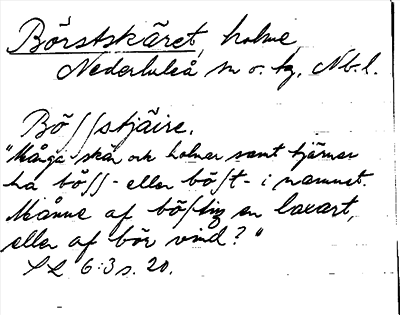 Börstskäret, holme,
Nederluleå sn o. tg, Nb.l.
Bösstjäire.
"Många skär och holmar samt tjärnar
ha böss- eller böst- i namnet.
Månne af bösting en laxart,
eller af bör vind?"
SL 6:3 s. 20.